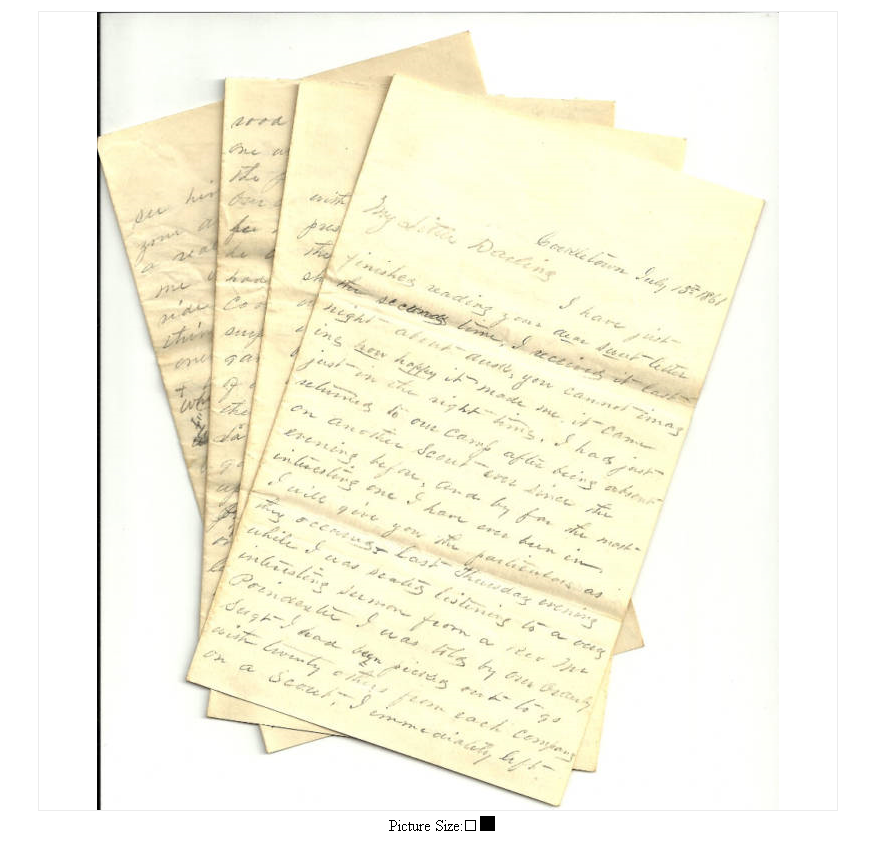 see him
your a
a real
me
ride
thin
over
road
one
the
our
had
Co
of
the
with
pres
the
sh
Cockletown July 13th 1861
My Little Darling
I have just
finished reading your dear sweet letter
the second time, I received it last
night about dusk, you cannot imag
ing how happy it made me, it came
just in the right time, I had just
returned to our camp after being absent
on another Scout ever since the
evening before, and by far the most
interesting one I have ever been in
I will give you the particulars as
they occured Last Thursday evening
while I was seated listening to a very
interesting sermon from a Rev Mr
Poindexter I was told by our Orderly
Sergt I had been picked out to go
with twenty others from each company
on a Scout, I immediately left
Picture Size: